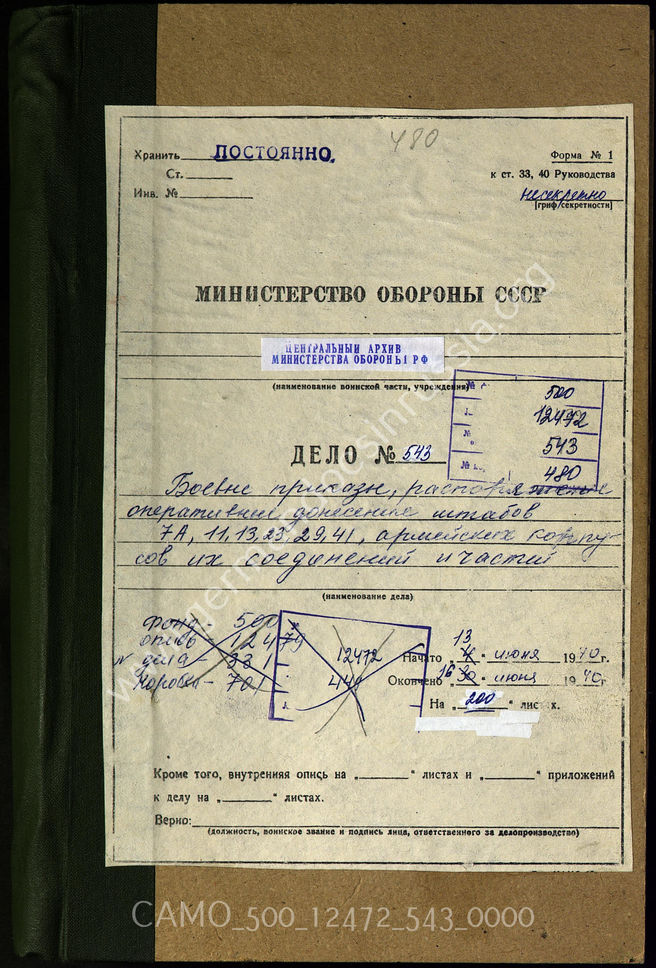 480
Хранить ПОСТОЯННО.
Форма № 1
Ст.
к ст. 33, 40 Руководства
Инв. №
несекретно
[гриф/секретности]
МИНИСТЕРСТВО ОБОРОНЫ СССР
ЦЕНТРАЛЬНЫЙ АРХИВ
МИНИСТЕРСТВА ОБОРОНЫ РФ
(наименование воинской части, учреждения)
500
12472
543
480
ДЕЛО № 543
Боевые приказы,
оперативные донесения штабов
7А, 11, 13, 23, 29, 41, армейских корпу-
сов их соединений и частей
(наименование дела)
Фонд - 500
опись - 12479
№ дела - 331
Коробка - 701
12472
449
13
Начато „ 4 " июня 1940г.
Окончено 16 30 " июня 1940г.
На „ 200 " листах.
Кроме того, внутренняя опись на „ " листах и „ " приложений
к делу на „ " листах.
Верно:
(должность, воинское звание и подпись лица, ответственного за делопроизводство)
www.germandocsinrussia.org
CAMO_500_12472_543_0000